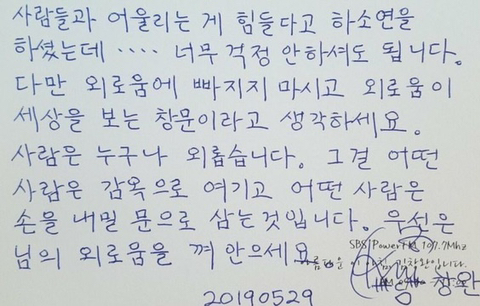 사람들과 어울리는 게 힘들다고 하소연을
하셨는데 ···· 너무 걱정 안하셔도 됩니다.
다만 외로움에 빠지지 마시고 외로움이
세상을 보는 창문이라고 생각하세요.
사람은 누구나 외롭습니다. 그걸 어떤
사람은 감옥으로 여기고 어떤 사람은
손을 내밀 문으로 삼는것입니다. 우선은
SBS PowerFM 107.7Mhz
님의 외로움을 껴 안으세요
아름다운 이 아침 김창완입니다.
창완
20190529